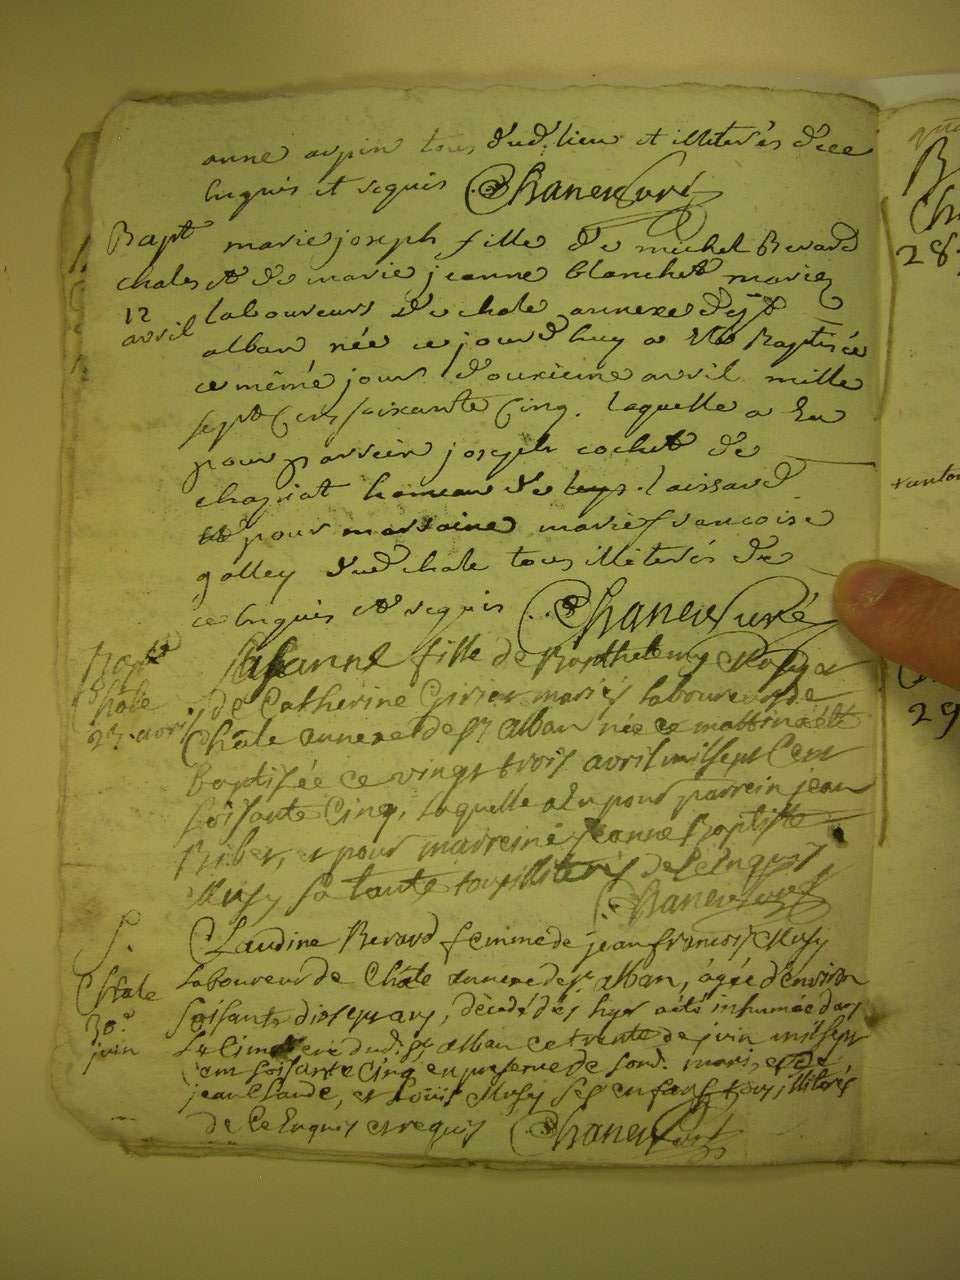 anne arpin tous dud. lieu et illiterés d'ice
Enquis et requis Chanen Curé
Bapt marie joseph fille de michel Berard
chales et de marie jeanne blanchet mariez
12 laboureurs de chale annexe de st
avril alban née ce jourd huy a été Baptisée
ce même jour douzieme avril mille
sept Cens soixante Cinq. laquelle a Eu
pour parrein joseph cochet de
chapiat hameau de laissard
et pour marraine marie francoise
golley dud chale tous illiterés de
ce Enquis et requis Chanen Curé
Bapt Susanne fille de Barthelemy
Chale de Catherine mariés laboureurs de
23. avril Châle annexe de st alban née ce matin a été
baptisée ce vingt trois avril mil sept Cent
soisante Cinq, laquelle a Eu pour parrein jean
et pour marreine jeanne Baptiste
Musy sa tante tous illiterés de ce Enquis
Chanen Curé
S. Claudine Berard femme de jean francois Musy
Châle laboureur de Châle annexe de st alban, âgée d'environ
30e soisante dix ans, décédée hyer a été inhumée dans
juin le Cimetiere dud. st alban ce trente de juin mil sept
Cent soisante Cinq en presence de sond. mari, et de
jean Claude, et Loüis Musy ses enfans tous illiterés
de Ce Enquis et requis Chanen Curé
28
29